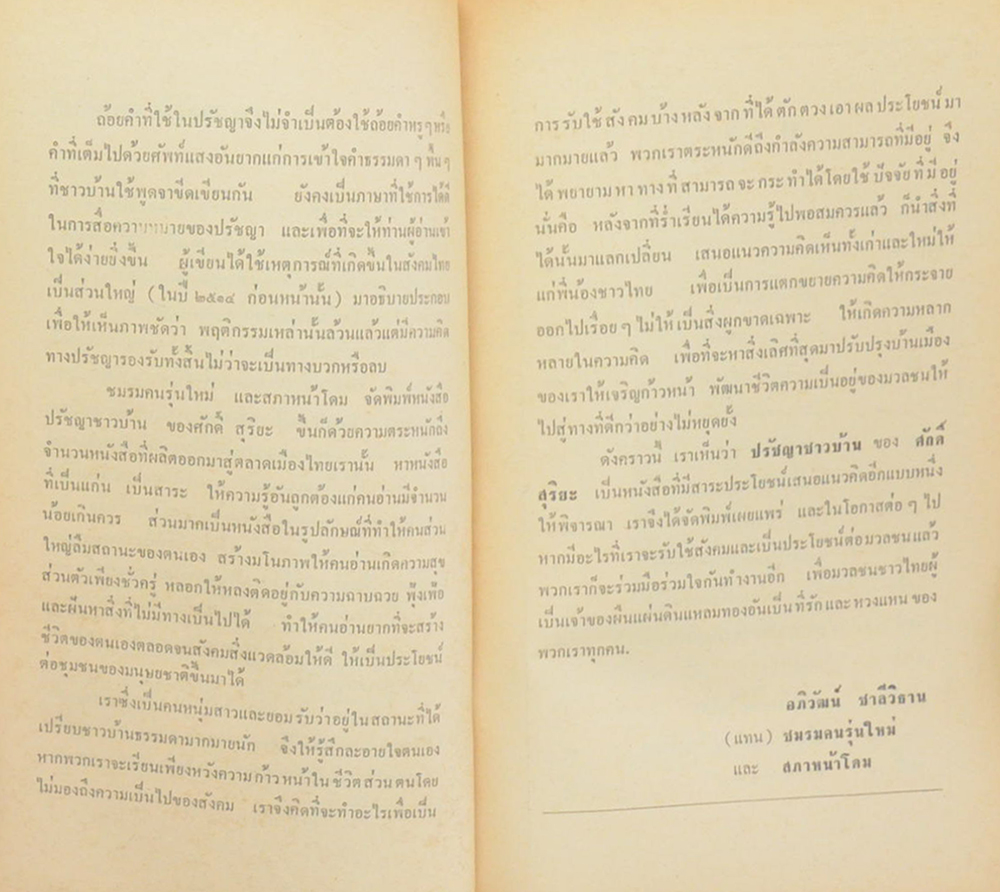 ถ้อยคำที่ใช้ในปรัชญาจึงไม่จำเป็นต้องใช้ถ้อยคำหรู ๆ หรือ
คำที่เต็มไปด้วยศัพท์แสงอันยากแก่การเข้าใจคำธรรมดา ๆ พื้น ๆ
ที่ชาวบ้านใช้พูดจาขีดเขียนกัน ยังคงเป็นภาษาที่ใช้การได้ดี
ในการสื่อความหมายของปรัชญา และเพื่อที่จะให้ท่านผู้อ่านเข้า
ใจได้ง่ายยิ่งขึ้น ผู้เขียนได้ใช้เหตุการณ์ที่เกิดขึ้นในสังคมไทย
เป็นส่วนใหญ่ (ในปี ๒๕๑๔ ก่อนหน้านั้น) มาอธิบายประกอบ
เพื่อให้เห็นภาพชัดว่า พฤติกรรมเหล่านั้นล้วนแล้วแต่มีความคิด
ทางปรัชญารองรับทั้งสิ้นไม่ว่าจะเป็นทางบวกหรือลบ
ชมรมคนรุ่นใหม่ และสภาหน้าโดม จัดพิมพ์หนังสือ
ปรัชญาชาวบ้าน ของศักดิ์ สุริยะ ขึ้นก็ด้วยความตระหนักถึง
จำนวนหนังสือที่ผลิตออกมาสู่ตลาดเมืองไทยเรานั้น หาหนังสือ
ที่เป็นแก่น เป็นสาระ ให้ความรู้อันถูกต้องแก่คนอ่านมีจำนวน
น้อยเกินควร ส่วนมากเป็นหนังสือในรูปลักษณ์ที่ทำให้คนส่วน
ใหญ่ลืมสถานะของตนเอง สร้างมโนภาพให้คนอ่านเกิดความสุข
ส่วนตัวเพียงชั่วครู่ หลอกให้หลงติดอยู่กับความฉาบฉวย ฟุ้งเฟ้อ
และฝันหาสิ่งที่ไม่มีทางเป็นไปได้ ทำให้คนอ่านยากที่จะสร้าง
ชีวิตของตนเองตลอดจนสังคมสิ่งแวดล้อมให้ดี ให้เป็นประโยชน์
ต่อชุมชนของมนุษยชาติขึ้นมาได้
เราซึ่งเป็นคนหนุ่มสาวและยอมรับว่าอยู่ในสถานะที่ได้
เปรียบชาวบ้านธรรมดามากมายนัก จึงให้รู้สึกละอายใจตนเอง
หากพวกเราจะเรียนเพียงหวังความก้าวหน้าในชีวิตส่วนตนโดย
ไม่มองถึงความเป็นไปของสังคม เราจึงคิดที่จะทำอะไรเพื่อเป็น
การรับใช้สังคมบ้างหลังจากที่ได้ตักตวงเอาผลประโยชน์มา
มากมายแล้ว พวกเราตระหนักดีถึงกำลังความสามารถที่มีอยู่ จึง
ได้พยายามหาทางที่สามารถจะกระทำได้โดยใช้ปัจจัยที่มีอยู่
นั่นคือ หลังจากที่ร่ำเรียนได้ความรู้ไปพอสมควรแล้ว ก็นำสิ่งที่
ได้นั้นมาแลกเปลี่ยน เสนอแนวความคิดเห็นทั้งเก่าและใหม่ให้
แก่พี่น้องชาวไทย เพื่อเป็นการแตกขยายความคิดให้กระจาย
ออกไปเรื่อย ๆ ไม่ให้เป็นสิ่งผูกขาดเฉพาะ ให้เกิดความหลาก
หลายในความคิด เพื่อที่จะหาสิ่งเลิศที่สุดมาปรับปรุงบ้านเมือง
ของเราให้เจริญก้าวหน้า พัฒนาชีวิตความเป็นอยู่ของมวลชนให้
ไปสู่ทางที่ดีกว่าอย่างไม่หยุดยั้ง
ดังคราวนี้ เราเห็นว่า ปรัชญาชาวบ้าน ของ ศักดิ์
สุริยะ เป็นหนังสือที่มีสาระประโยชน์เสนอแนวคิดอีกแบบหนึ่ง
ให้พิจารณา เราจึงได้จัดพิมพ์เผยแพร่ และในโอกาสต่อ ๆ ไป
หากมีอะไรที่เราจะรับใช้สังคมและเป็นประโยชน์ต่อมวลชนแล้ว
พวกเราก็จะร่วมมือร่วมใจกันทำงานอีก เพื่อมวลชนชาวไทยผู้
เป็นเจ้าของผืนแผ่นดินแหลมทองอันเป็นที่รักและหวงแหนของ
พวกเราทุกคน.
อภิวัฒน์ ชาลีวิธาน
(แทน) ชมรมคนรุ่นใหม่
และ สภาหน้าโดม